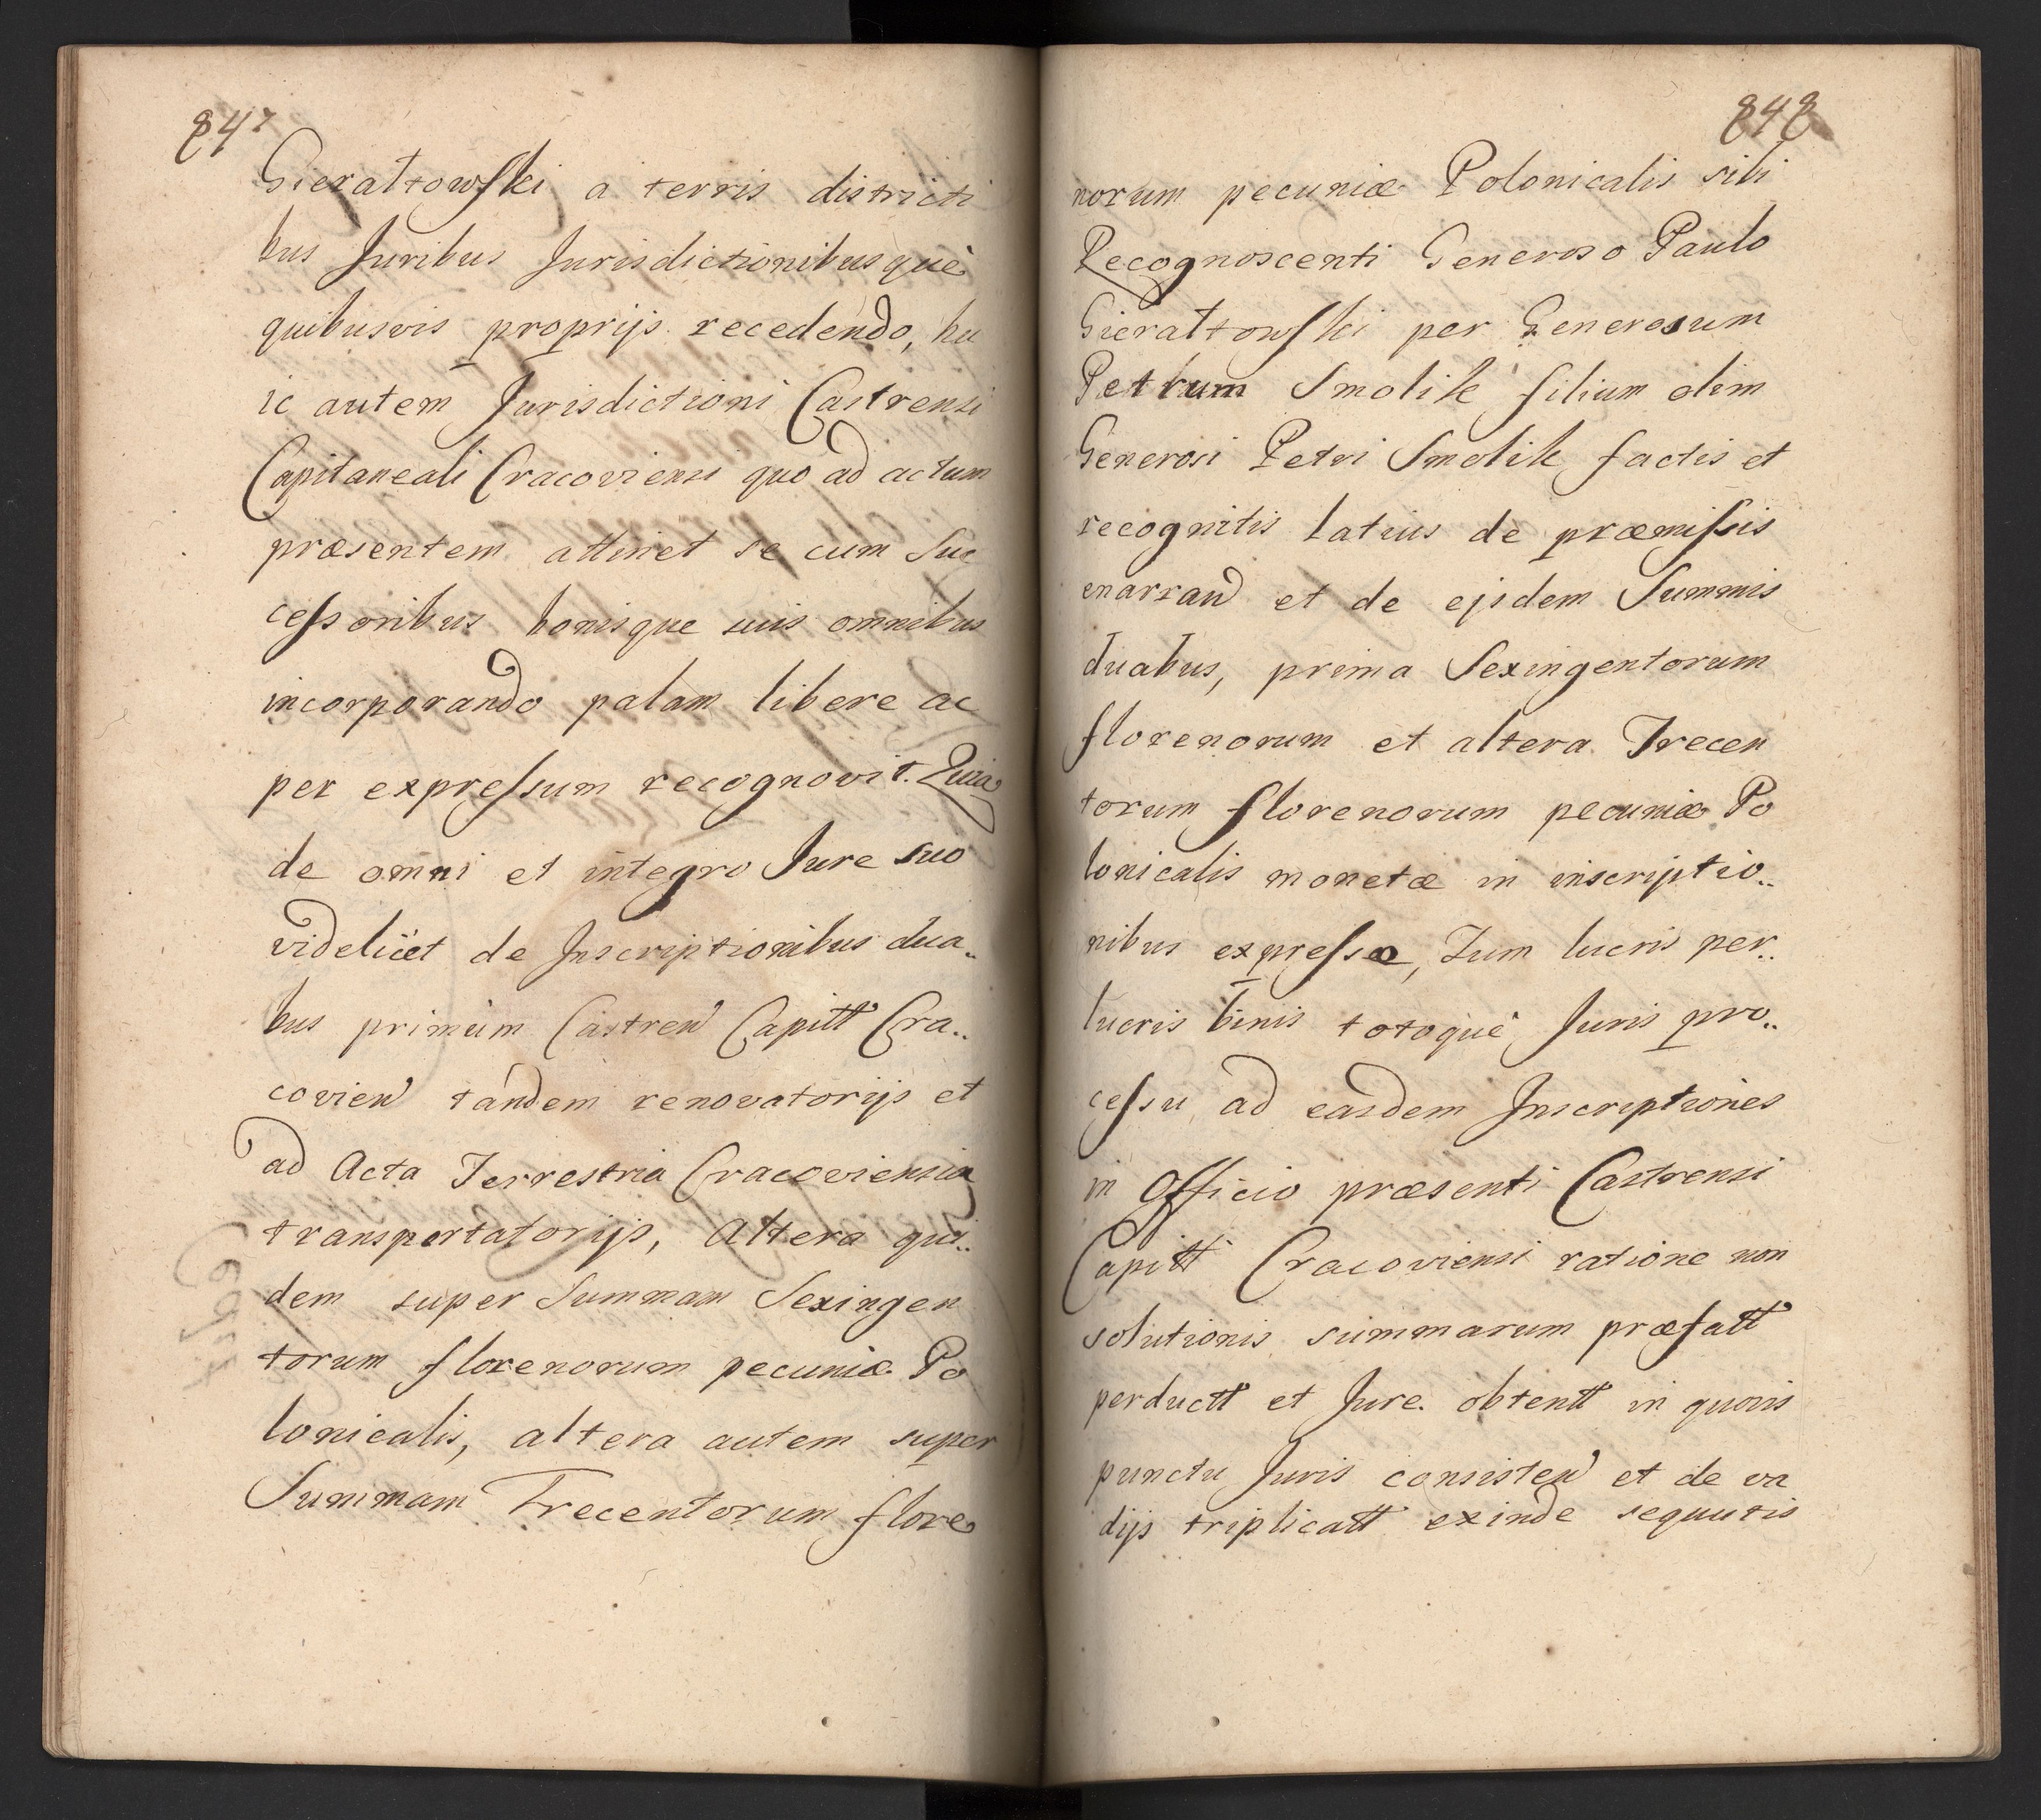 847
Gieraltowski a terris districti
bus Juribus Jurisdictionibusque
quibusvis proprijs recedendo, hu
ic autem Jurisdictioni Castrensi
Capitaneali Cracoviensi quo ad actum
præsentem attinet se cum Suc
cessoribus bonisque suis omnibus
incorporando palam libere ac
per expressum recognovit. Quia
de omni et integro Jure suo
videlicet de Inscriptionibus dua..
bus primum Castren Capitt Cra..
covien tandem renovatorijs et
ad Acta Terrestria Cracoviensia
transportatorijs, Altera qui..
dem super Summam Sexingen
torum florenorum pecuniæ Po
lonicalis, altera autem super
Summam Trecentorum flore
848
norum pecuniæ Polonicalis sibi
Recognoscenti Generoso Paulo
Gieraltowski per Generosum
Petrum Smolik filium olim
Generosi Petri Smolik factis et
recognitis latius de præmissis
enarran et de ejsdem Summis
duabus, prima Sexingentorum
florenorum et altera Trecen
torum florenorum pecuniæ Po
lonicalis monetæ in inscriptio..
nibus expressæ, Tum lucris per..
lucris binis totoque Juris pro..
cessu ad easdem Inscriptiones
in Officio præsenti Castrensi
Capitt Cracoviensi ratione non
solutionis summarum præfatt
perductt et Jure obtentt in quovis
punctu Juris consisten et de va
dijs triplicatt exinde sequutis